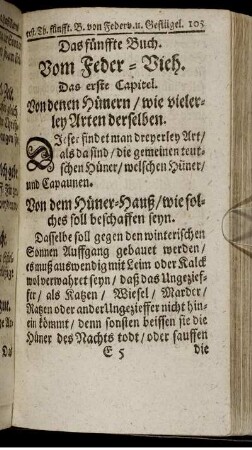 Erst. Th. fünfft. B. von Federv. u. Geflügel. 105
Das fünffte Buch.
Vom Feder-Vieh.
Das erste Capitel.
Von denen Hünern / wie vieler-
ley Arten derselben.
Dieser findet man dreyerley Art /
als da sind / die gemeinen teut-
schen Hüner / welschen Hüner /
und Capaunen.
Von dem Hüner-Hauß / wie sol-
ches soll beschaffen seyn.
Dasselbe soll gegen den winterischen
Sonnen Auffgang gebauet werden /
es muß auswendig mit Leim oder Kalck
wol verwahret seyn / daß das Ungezief-
fer / als Katzen / Wiesel / Marder /
Ratzen oder ander Ungezieffer nicht hin-
ein kömmt / denn sonsten beissen sie die
Hüner des Nachts todt / oder sauffen
E 5 die